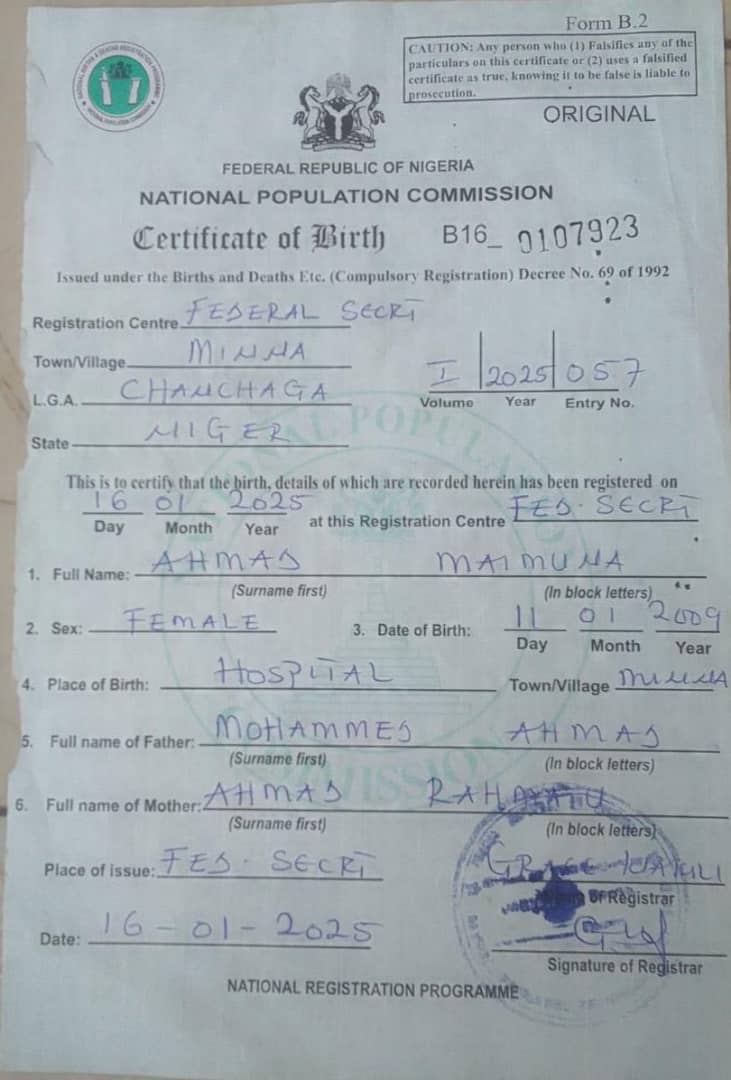 Form B.2
CAUTION: Any person who (1) Falsifies any of the
particulars on this certificate or (2) uses a falsified
certificate as true, knowing it to be false is liable to
prosecution.
ORIGINAL
FEDERAL REPUBLIC OF NIGERIA
NATIONAL POPULATION COMMISSION
Certificate of Birth B16_ 0107923
Issued under the Births and Deaths Etc. (Compulsory Registration) Decree No. 69 of 1992
Registration Centre FEDERAL SECRT
Town/Village MINNA
L.G.A. CHANCHAGA
State NIGER
I 2025 057
Volume Year Entry No.
This is to certify that the birth, details of which are recorded herein has been registered on
16 01 2025 at this Registration Centre FED. SECRT
Day Month Year
1. Full Name: AHMAD MAIMUNA
(Surname first) (In block letters)
2. Sex: FEMALE 3. Date of Birth: 11 01 2009
Day Month Year
4. Place of Birth: HOSPITAL Town/Village MINNA
5. Full name of Father: MOHAMMED AHMAD
(Surname first) (In block letters)
6. Full name of Mother: AHMAD RAHMATU
(Surname first) (In block letters)
Place of issue: FED. SECRT GRACE
of Registrar
Date: 16-01-2025
Signature of Registrar
NATIONAL REGISTRATION PROGRAMME
NATIONAL POPULATION COMMISSION